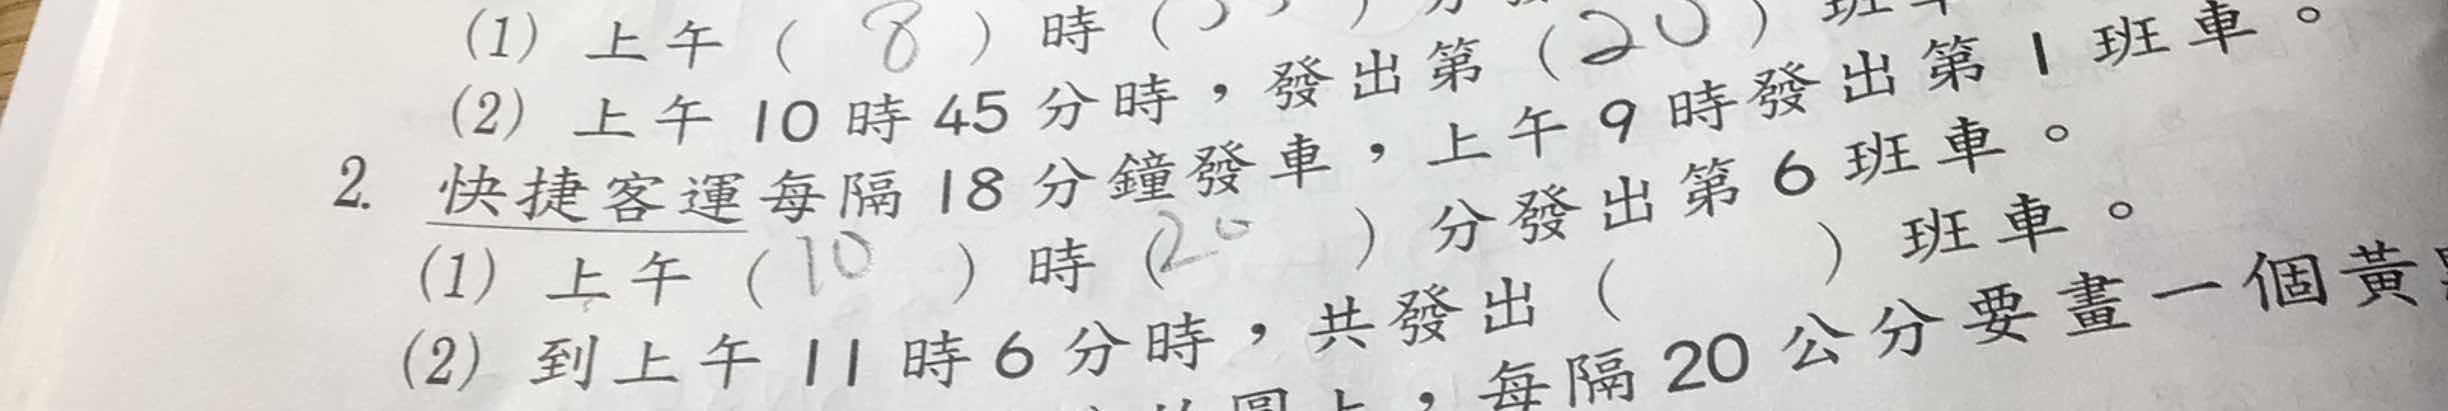 (1) 上午 ( 8 ) 時 (
(2) 上午 10 時 45 分時，發出第 ( 20 ) 班車
2. 快捷客運每隔 18 分鐘發車，上午 9 時發出第 1 班車。
(1) 上午 ( 10 ) 時 ( 20 ) 分發出第 6 班車。
(2) 到上午 11 時 6 分時，共發出 ( ) 班車。
每隔 20 公分要畫一個黃